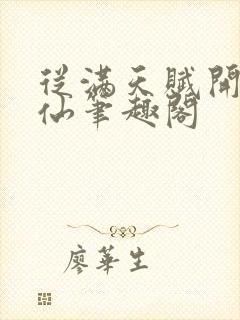 從滿天賦開
仙筆趣閣
廖華生